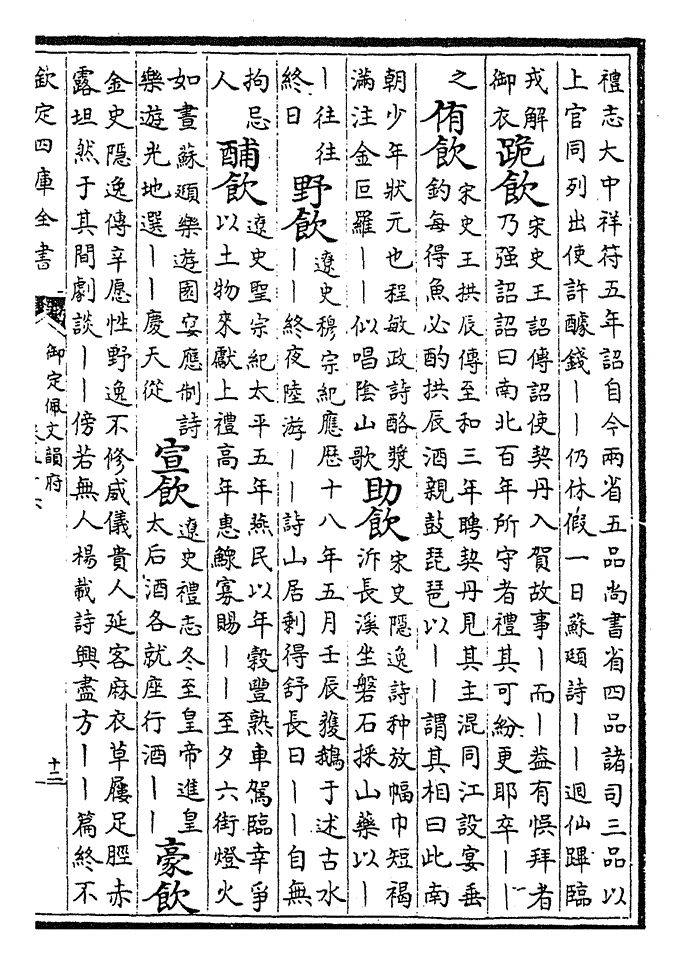 禮志大中祥符五年詔自今兩省五品尚書省四品諸司三品以
上官同列出使許醵錢丨丨仍休假一日蘇頲詩丨丨迴仙蹕臨
戎解
御衣
跪飲
宋史王詔傳詔使契丹入賀故事丨而丨益有悞拜者
乃强詔詔曰南北百年所守者禮其可紛更耶卒丨丨
之
侑飲
宋史王拱辰傳至和三年聘契丹見其主混同江設宴垂
釣每得魚必酌拱辰酒親鼓琵琶以丨丨謂其相曰此南
朝少年狀元也程敏政詩酪漿
滿注金叵羅丨丨似唱陰山歌
助飲
宋史隱逸詩种放幅巾短褐
泝長溪坐磐石採山藥以丨
丨往往
終日
野飲
遼史穆宗紀應歴十八年五月壬辰獲鵝于述古水
丨丨終夜陸游丨丨詩山居剩得舒長日丨丨自無
拘忌
人
酺飲
遼史聖宗紀太平五年燕民以年穀豐熟車駕臨幸爭
以土物來獻上禮高年惠鰥寡賜丨丨至夕六街燈火
如晝蘇頲樂遊園宴應制詩
樂遊光地選丨丨慶天從
宣飲
遼史禮志冬至皇帝進皇
太后酒各就座行酒丨丨
豪飲
金史隱逸傳辛愿性野逸不修威儀貴人延客麻衣草屨足脛赤
露坦然于其間劇談丨丨傍若無人楊載詩興盡方丨丨篇終不
欽定四庫全書
御定佩文韻府
十二